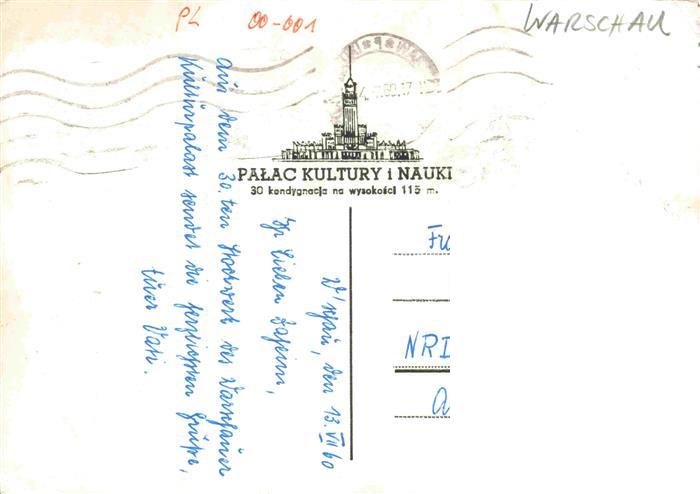 PL 00-001
WARSCHAU
PAŁAC KULTURY i NAUKI
30 kondygnacja na wysokości 115 m.
W'schau, den 13.VII 60
Ihr Lieben daheim,
Aus dem 30.ten Stockwerk des Warschauer
Kulturpalast sendet die herzlichsten Grüße,
Euer Vati.
Fu
NRI
a